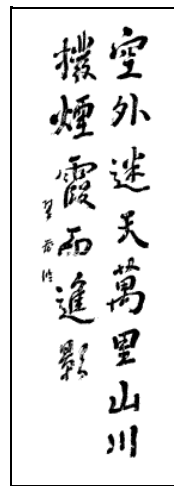 空外迷天萬里山川
撥煙霞而進影